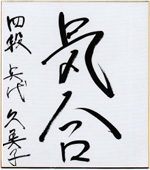 気合
四段 矢代 久美子